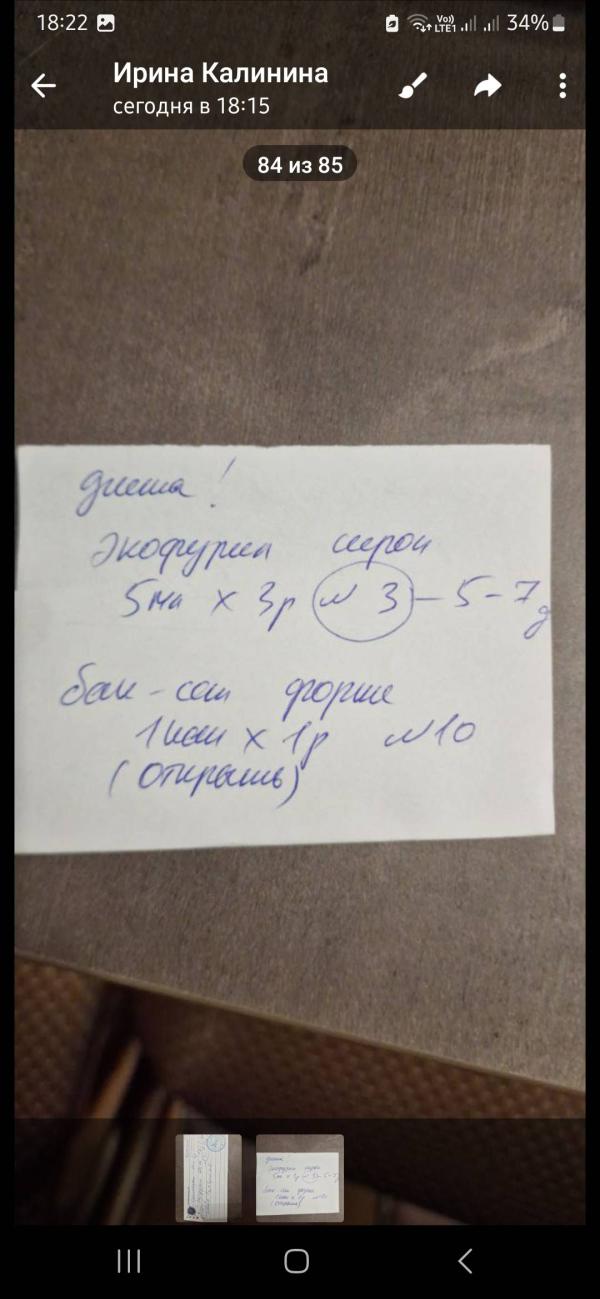 18:22 Vo)) LTE1 34%
Ирина Калинина
сегодня в 18:15
84 из 85
диета!
Экофурил сироп
5 мл x 3р №3-5-7д
бак-сет форте
1 кап x 1р №10
(открыть)